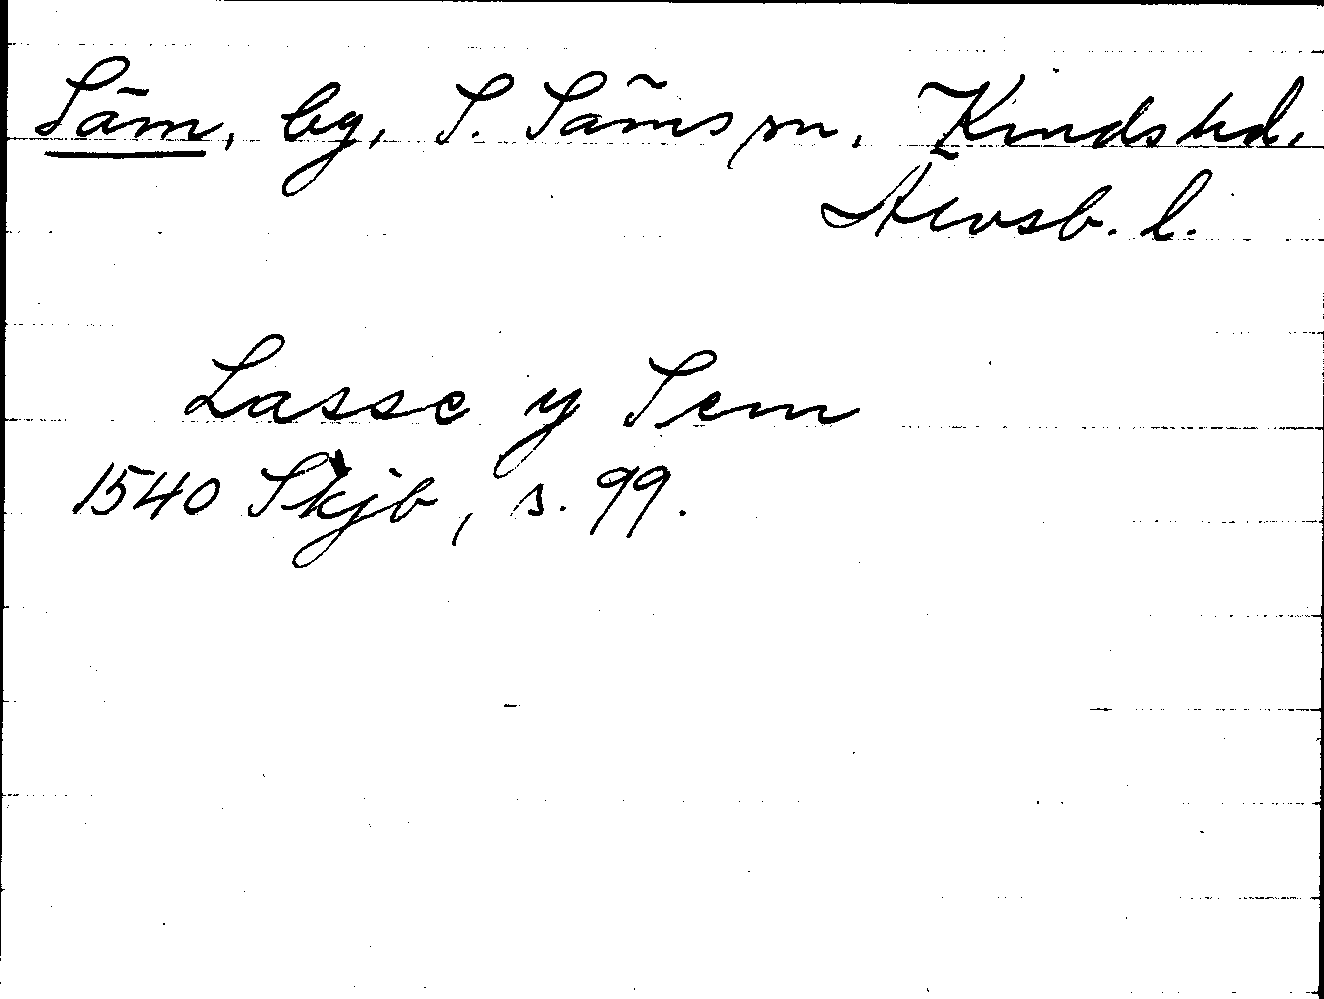 Säm, by, S. Säms sn, Kinds hd.
Älvsb. l.
Lasse y Sem
1540 Skjb, s. 99.